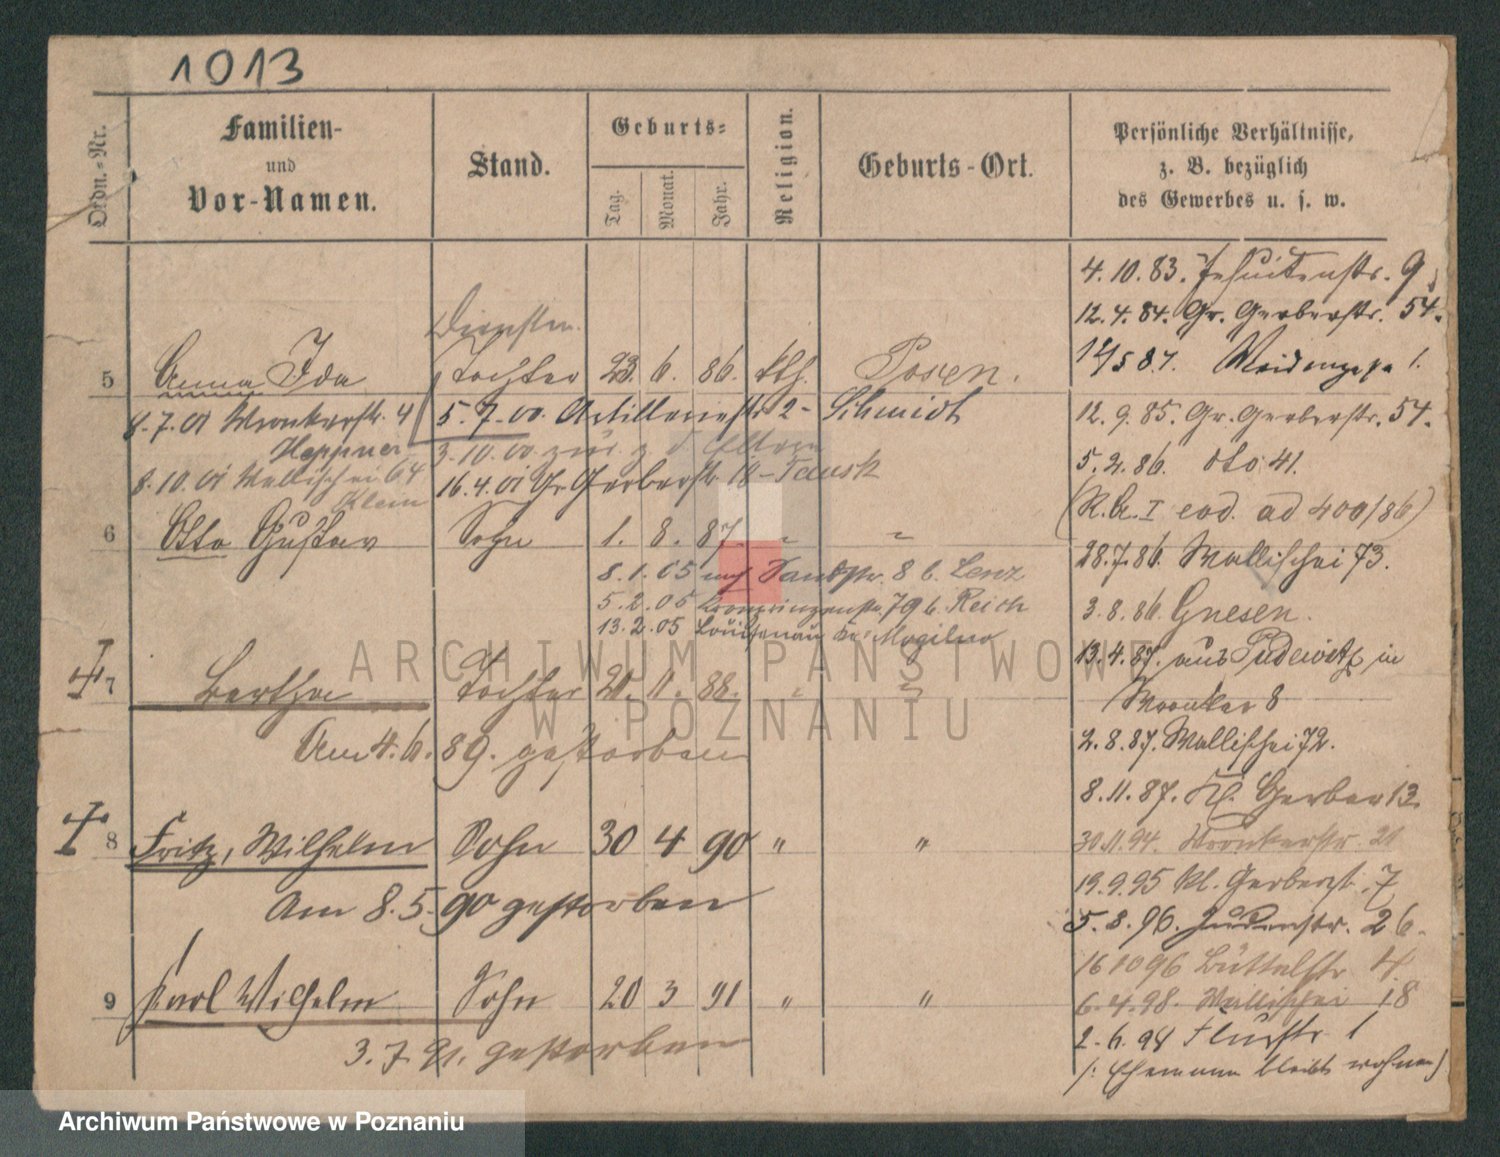 1013
Ordn.-Nr.
Familien-
und
Vor-Namen.
Stand.
Geburts-
Tag. Monat. Jahr.
Religion.
Geburts-Ort.
Persönliche Verhältnisse,
z. B. bezüglich
des Gewerbes u. s. w.
4.10.83. Jesuitenstr. 9
12.4.84. Gr. Gerberstr. 54.
Weidengasse 1.
5 Anna Ida Tochter 23. 6. 86. kth. Posen.
8.7.01 Wronkerstr. 4 5.7.00. Artilleriestr 2 - Schmidt
Heppner 3.10.00 zur. z. d. Eltern
8.10.01 Wallischei 64 16.4.01 Gr Gerberstr 18 - Tausk
Klein
12.9.85. Gr. Gerberstr. 54.
5.2.86. dto 41.
(R.A. I eod. ad 400/86)
6 Otto Gustav Sohn 1. 8. 87. " "
8.1.05 auf Sandstr. 8 b. Lenz
5.2.05 Kronprinzenstr. 79 b. Reich
13.2.05 Louisenau Kr. Mogilno
28.7.86. Wallischei 73.
3.8.86. Gnesen.
13.4.87. aus Pudewitz in
Wronker 8
7 Bertha Tochter 21. 11. 88. " "
Am 4.6.89. gestorben
2.8.87. Wallischei 72.
8.11.87. Kl. Gerber 13
8 Fritz, Wilhelm Sohn 30 4 90 " "
Am 8.5.90 gestorben
30.11.94. Wronkerstr. 21
19.9.95 Kl. Gerberst. 7
5.8.96. Judenstr. 26.
16 10 96 Büttelstr 4.
9 Karl Wilhelm Sohn 20 3 91 " "
3.7.91. gestorben
6.4.98. Wallischei 18
2.6.98 Flurstr 1
(: Ehemann bleibt wohnen)
ARCHIWUM PAŃSTWOWE
W POZNANIU
Archiwum Państwowe w Poznaniu